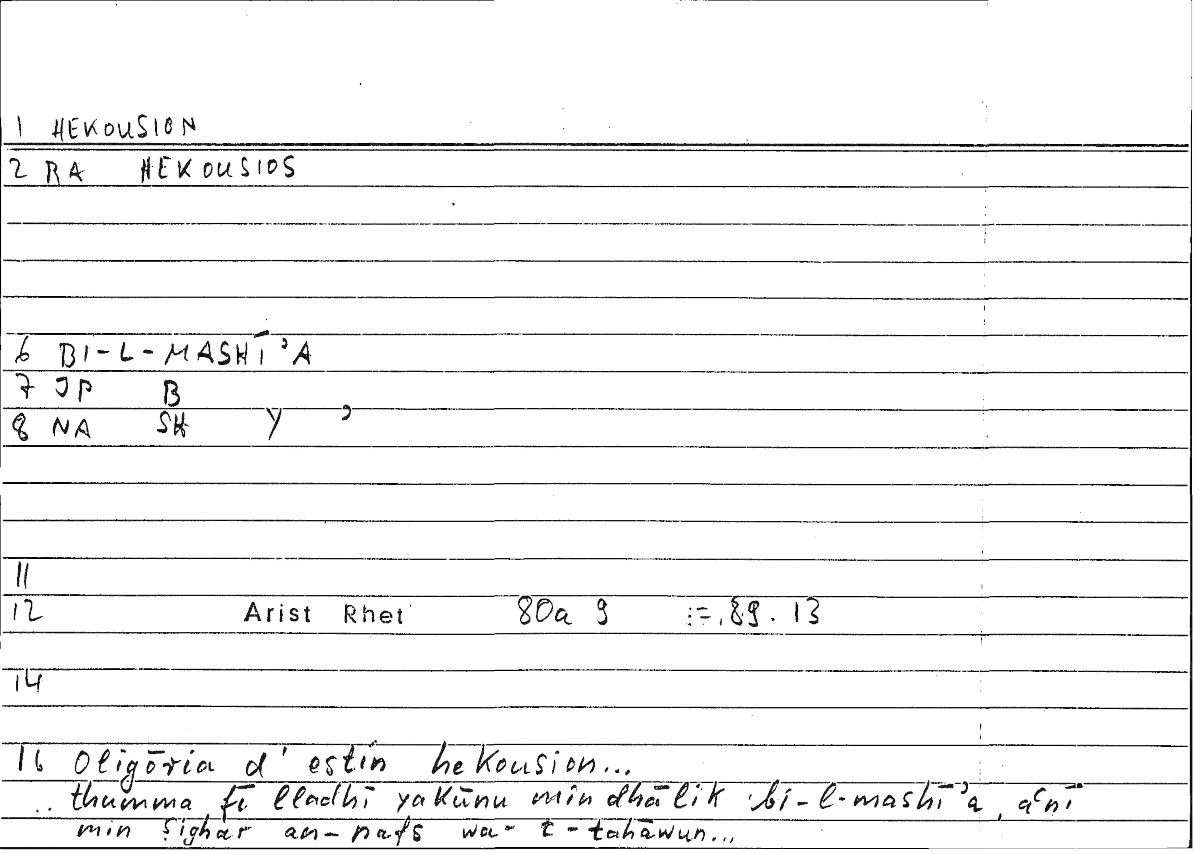 1 HEKOUSION
2 RA HEKOUSIOS
6 BI-L-MASHĪ'A
7 JP B
8 NA SH Y '
11
12 Arist Rhet 80a 9 := 89.13
14
16 Oligōria d' estin hekousion...
.. thumma fī lladhī yakūnu min dhālik bi-l-mashī'a, aʿnī
min ṣighar an-nafs wa-t-tahāwun...